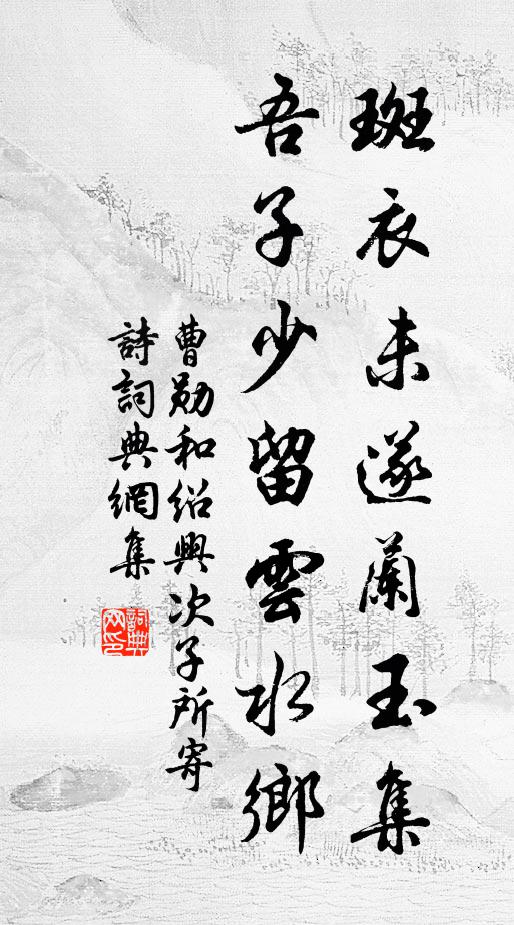 斑衣未遂蘭玉集
吾子少留雲水鄉
曹勛和紹興次子所寄
詩詞典網集
詞典网印